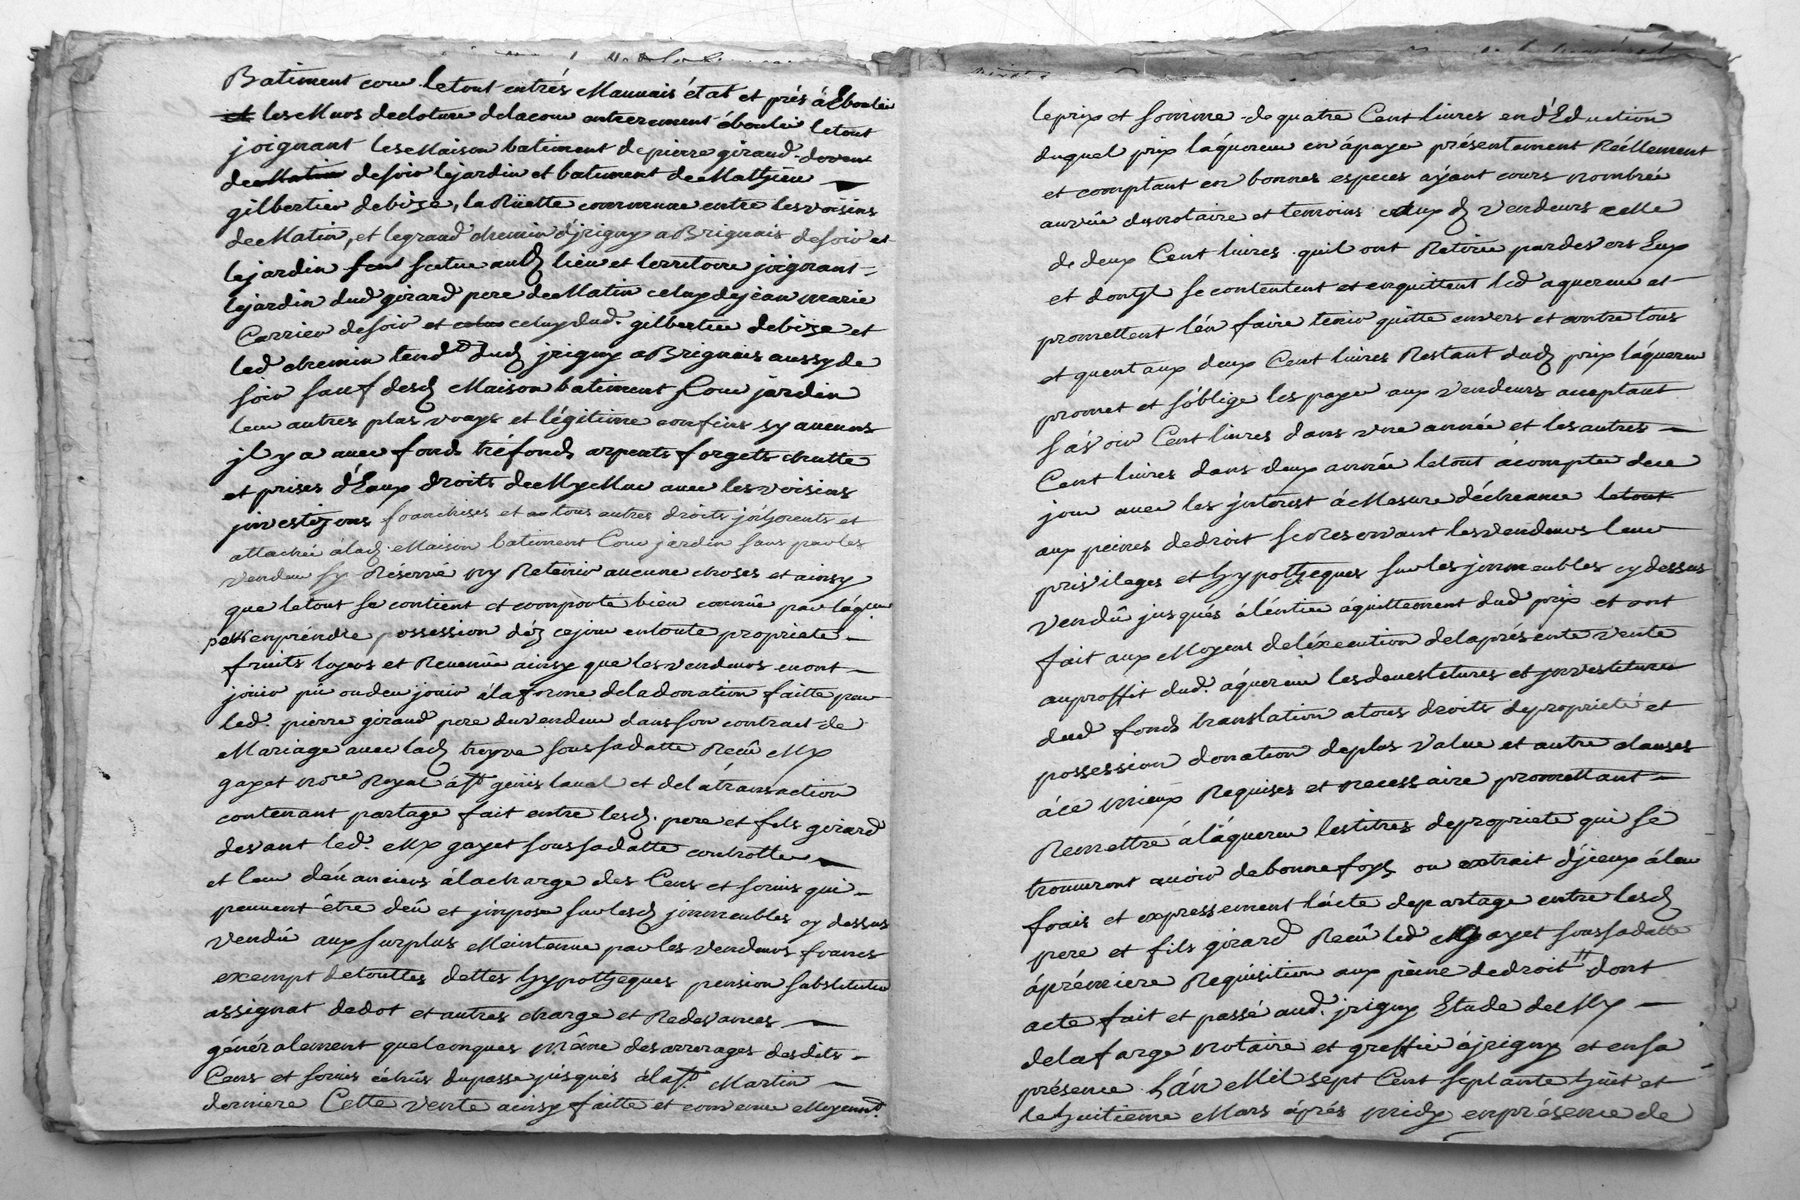 Batiment cour letout entrés Mauvais état et prés á Eboulée
et les Murs decloture delacour entierement ébouleé letout
joignant les Maison batiment depierre giraud dovent
de Matin desoir lejardin et batiment de Mathieu
gilbertier debize, la Rüette commune entre les voisins
de Matin, et legrand chemin d'jrigny a Brignais desoir et
lejardin scitué audt lieu et territoire joignant
lejardin dud girard pere de Matin celuy de jean marie
Carrier desoir et celuy dud. gilbertier debize et
led chemin tendt dudt jrigny a Brignais aussy de
soir sauf desdt Maison batiment Cour jardin
leur autres plus vrays et légitime confins sy aucuns
jl y a avec fonds tréfonds arpents forgets chutte
et prises d'Eaux droits de avec les voisins
jnvestizons franchises et tous autres droits
attachée álad. Maison batiment Cour jardin sans parles
Vendeur sy Réservé ny Retenir aucune choses et ainsy
que letout se contient et comporte bien connüe par láqur
pour enpréndre possession déz cejour entoute propriete
fruits loyers et Revenûe ainsy que les vendeurs enont
joüir pü oudeu joüir álaforme deladonation faitte par
led. pierre giraud pere duvendeur dansson contract de
Mariage avec ladt treyve soussadatte Recû Mx
gayet nore Royal ást genis laval et delátransaction
contenant partage fait entre lesdt. pere et fils girard
devant led. Mx gayet soussadatte controlle
et leur álacharge des Cens et servis qui
peuvent être deü et jmposé sur lesdt jmmeubles cy dessus
Vendû aux surplus Maintenue par les vendeurs francs
exempt detouttes dettes hypotheques pension substitution
assignat dedot et autres charge et Redevances
généralement quelconques même des arrerages desdits
Cens et servis échûs dupassé jusqués álast Martin
derniere Cette vente ainsy faitte et convenue Moyennt
leprix et somme de quatre Cent livres en d'Eduction
duquel prix láquereur en ápayé présentement Réellement
et comptant en bonnes especes áyant cours nombrée
auvûe dunotaire et temoins auxdt vendeurs celle
de deux Cent livres quil ont Retirée pardevers Eux
et dontjl se contentent et enquittent led aquereur et
promettent lén faire tenir quitte envers et contre tous
et quent aux deux Cent livres Restant dudt prix láquereur
promet et sóblige les payer aux vendeurs acceptant
sáVoir Cent livres dans une année et les autres
Cent livres dans deux année letout ácompter dece
jour avec les jnterest áMesure déchéance letout
aux peines dedroit seReservant lesvendeurs leur
privileges et hypotheques sur les jmmeubles cy dessus
Vendû jusqués áléntier áquittement dud prix et ont
fait aux Moyens deléxecution delaprésente vente
auproffit dud. áquereur les devestitures et jnvestitures
dud fonds translation atous droits depropriété et
possession donation deplus Value et autre clauses
áce mieux Requises et necessaire promettant
Remettre áláquereur lestitres depropriete qui se
trouveront avoir debonnefoys ou extrait d'jceux áleur
frais et expressement lácte departage entre lesdt
pere et fils girard Recû led Mx gayet soussadatte
áprémiere Requisition aux peine dedroit dont
acte fait et passé aud. jrigny Etude de Mx
delafarge notaire et greffier ájrigny et ensa
présence Lán Mil sept Cent septante hüit et
le huitieme Mars áprés midy enprésence de